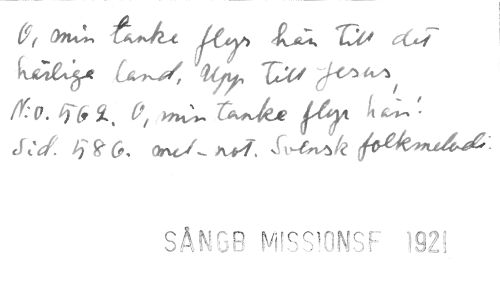 O, min tanke flyr hän till det
härliga land, Upp till Jesus,
N:o. 562. O, min tanke flyr hän!
Sid. 586. mel-not. Svensk folkmelodi.
SÅNGB MISSIONSF 1921